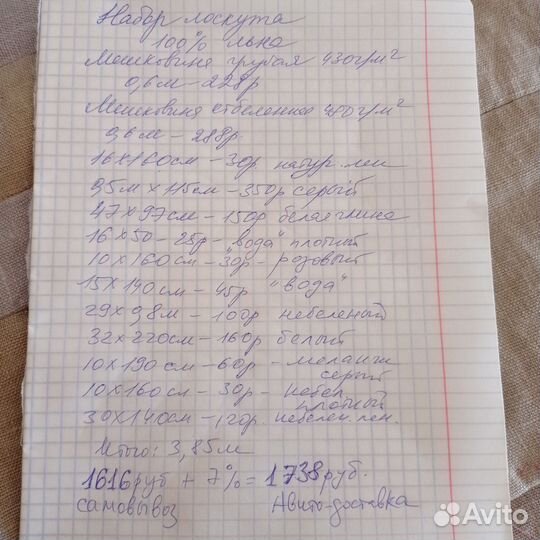 Набор лоскута
100% льна
Мешковина грубая 430г/м²
0,6м - 228р
Мешковина отбеленная 420г/м²
0,6м - 288р
16х160см - 30р. натур. лен
0,5м х 115см - 350р серый
47х97см - 150р белая глина
16х50 - 25р - "вода" плотный
10х160см - 30р - розовый
15х140см - 45р "вода"
29х0,8м - 100р небеленый
32х220см - 160р белый
10х190см - 60р - меланж
серый
10х160см - 30р - небел.
плотный
30х140см - 120р. небелен. лен.
Итого: 3,85м
1616руб + 7% = 1738руб.
самовывоз Авито-доставка
Avito